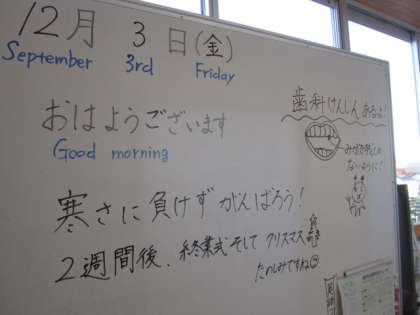 12月 3日(金)
September 3rd Friday
おはようございます
Good morning
歯科けんしんあるよ!
みがき残しの
ないように!
寒さに負けず がんばろう!
2週間後、終業式そして クリスマス
たのしみですね